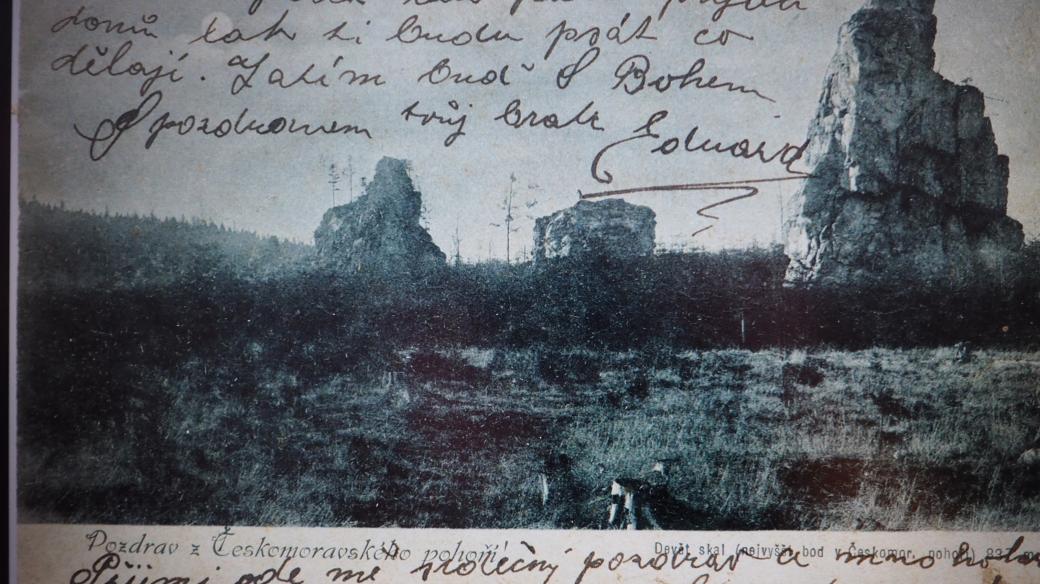 domů tak ti budu psát co
dělají. Zatím buď S Bohem
S pozdravem tvůj bratr Eduard
Pozdrav z Českomoravského pohoří!
Devět skal (nejvyšší bod v Českomor. pohoří)
Přijmi ode mě srdečný pozdrav a mnoho